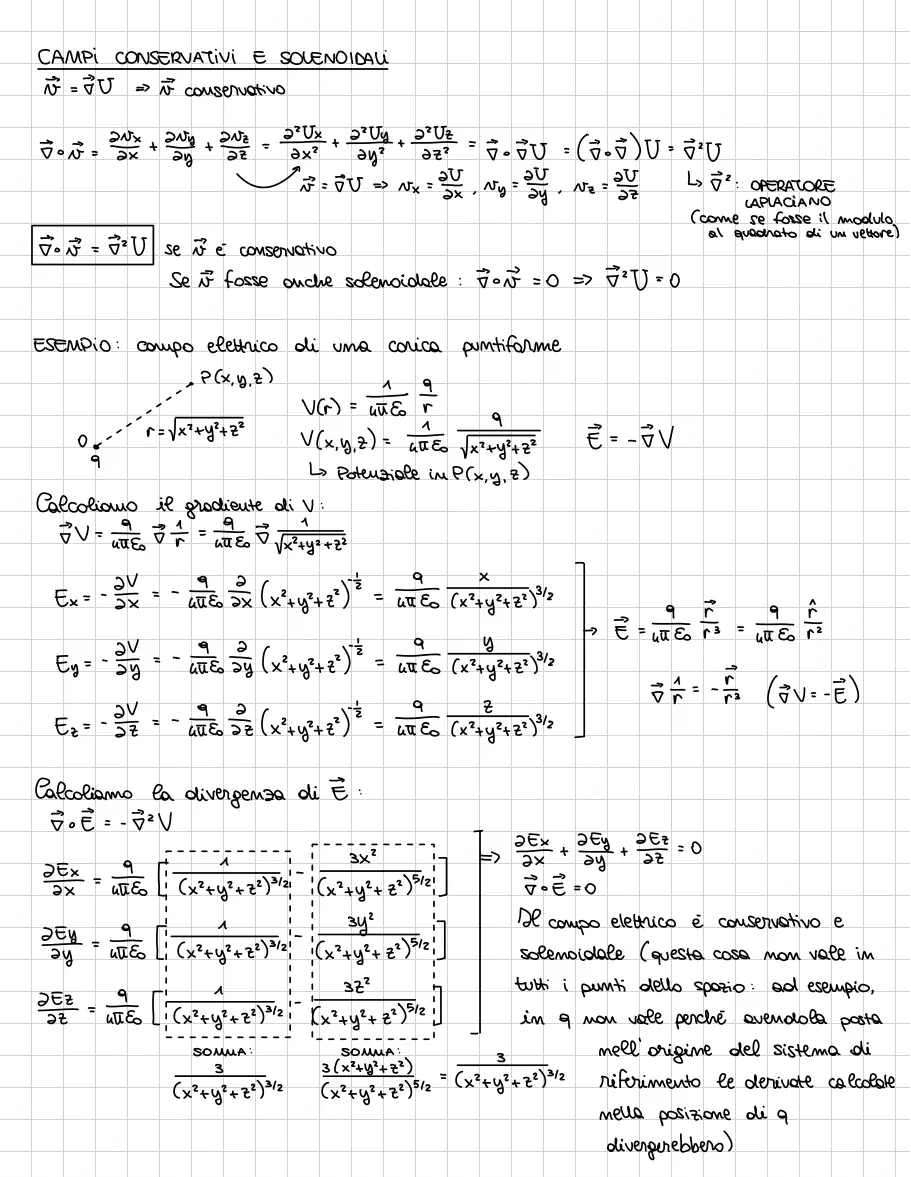 CAMPI CONSERVATIVI E SOLENOIDALI
v⃗ = ∇⃗U ⇒ v⃗ conservativo
∇⃗∘v⃗ = ∂vx/∂x + ∂vy/∂y + ∂vz/∂z = ∂²Ux/∂x² + ∂²Uy/∂y² + ∂²Uz/∂z² = ∇⃗∘∇⃗U = (∇⃗∘∇⃗)U = ∇⃗²U
v⃗ = ∇⃗U ⇒ vx = ∂U/∂x, vy = ∂U/∂y, vz = ∂U/∂z
↳ ∇⃗²: OPERATORE
LAPLACIANO
(come se fosse il modulo
al quadrato di un vettore)
∇⃗∘v⃗ = ∇⃗²U se v⃗ è conservativo
Se v⃗ fosse anche solenoidale : ∇⃗∘v⃗ = 0 ⇒ ∇⃗²U = 0
ESEMPIO: campo elettrico di una carica puntiforme
P(x,y,z)
r=√(x²+y²+z²)
O
q
V(r) = 1/(4πε₀) q/r
V(x,y,z) = 1/(4πε₀) q/√(x²+y²+z²)
↳ Potenziale in P(x,y,z)
E⃗ = -∇⃗V
Calcoliamo il gradiente di V:
∇⃗V = q/(4πε₀) ∇⃗ 1/r = q/(4πε₀) ∇⃗ 1/√(x²+y²+z²)
Ex = - ∂V/∂x = - q/(4πε₀) ∂/∂x (x²+y²+z²)^(-1/2) = q/(4πε₀) x/(x²+y²+z²)^(3/2)
Ey = - ∂V/∂y = - q/(4πε₀) ∂/∂y (x²+y²+z²)^(-1/2) = q/(4πε₀) y/(x²+y²+z²)^(3/2)
Ez = - ∂V/∂z = - q/(4πε₀) ∂/∂z (x²+y²+z²)^(-1/2) = q/(4πε₀) z/(x²+y²+z²)^(3/2)
→ E⃗ = q/(4πε₀) r⃗/r³ = q/(4πε₀) r̂/r²
∇⃗ 1/r = - r⃗/r³ (∇⃗V = -E⃗)
Calcoliamo la divergenza di E⃗ :
∇⃗∘E⃗ = -∇⃗²V
∂Ex/∂x = q/(4πε₀) [1/(x²+y²+z²)^(3/2) - 3x²/(x²+y²+z²)^(5/2)]
∂Ey/∂y = q/(4πε₀) [1/(x²+y²+z²)^(3/2) - 3y²/(x²+y²+z²)^(5/2)]
∂Ez/∂z = q/(4πε₀) [1/(x²+y²+z²)^(3/2) - 3z²/(x²+y²+z²)^(5/2)]
SOMMA:
3/(x²+y²+z²)^(3/2)
SOMMA:
3(x²+y²+z²)/(x²+y²+z²)^(5/2) = 3/(x²+y²+z²)^(3/2)
⇒ ∂Ex/∂x + ∂Ey/∂y + ∂Ez/∂z = 0
∇⃗∘E⃗ = 0
Il campo elettrico è conservativo e
solenoidale (questa cosa non vale in
tutti i punti dello spazio: ad esempio,
in q non vale perché avendola posta
nell'origine del sistema di
riferimento le derivate calcolate
nella posizione di q
divergerebbero)